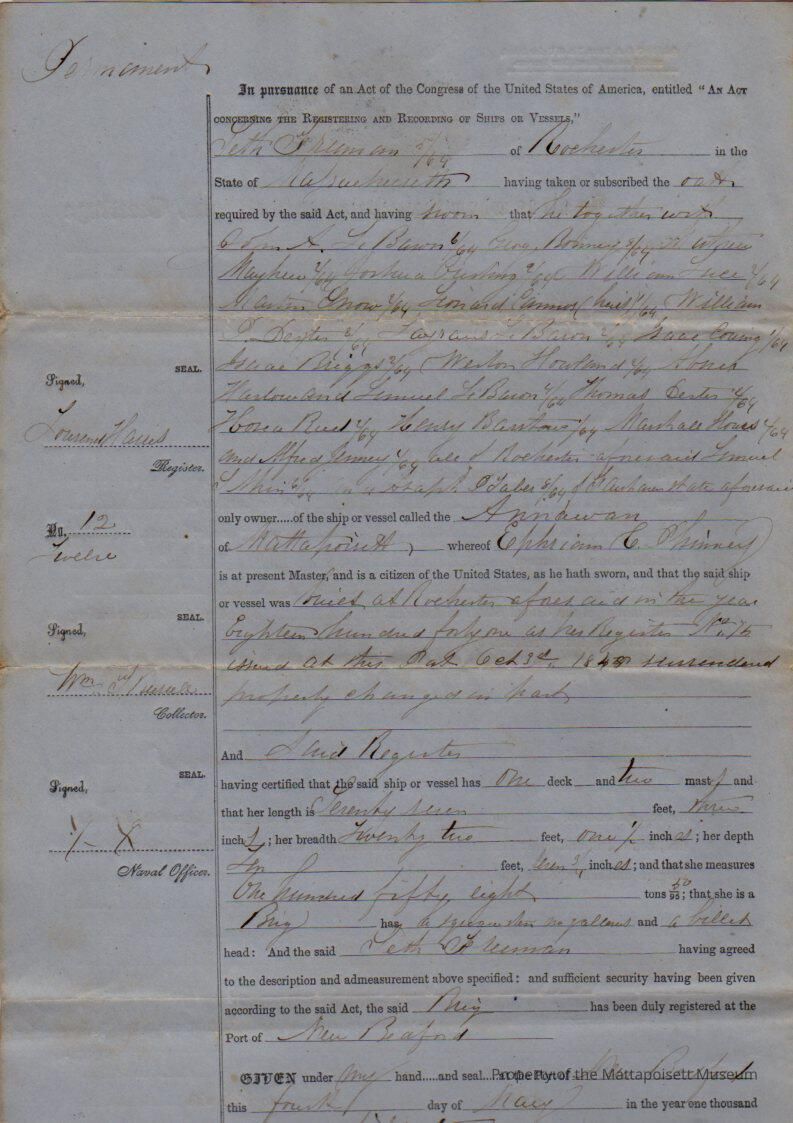 Permanent
In pursuance of an Act of the Congress of the United States of America, entitled "An Act
concerning the Registering and Recording of Ships or Vessels,"
Seth Freeman /64 of Rochester in the
State of Massachusetts having taken or subscribed the oath
required by the said Act, and having sworn that he together with
A. Le Baron /64 Bonney /64
Mayhew 2/64 Joshua Cushing 2/64 William Luce /64
Martin Snow 2/64 Leonard Hammond (heirs) 1/64 William
Dexter 2/64 Le Baron 2/64 Isaac 1/64
Isaac Briggs 2/64 Weston Howland 4/64 Abner
Harlow and Lemuel Le Baron 4/64 Thomas Dexter 2/64
Hosea 2/64 Henry Barstow /64 Marshall 4/64
and Alfred Jenney 4/64 all of Rochester aforesaid Lemuel
Taber 5/64 of Fairhaven State aforesaid
only owner.....of the ship or vessel called the Annawan
of Mattapoisett, whereof Ephriam C. Phinney
is at present Master, and is a citizen of the United States, as he hath sworn, and that the said ship
or vessel was built at Rochester aforesaid in the year
Eighteen hundred forty one as her Register No.
issued at this Port Oct 3d surrendered
property changed in part
And Said Register
having certified that the said ship or vessel has one deck and two masts and
that her length is Seventy seven feet, three
inch ; her breadth Twenty two feet, one ½ inches; her depth
feet, inches; and that she measures
One hundred fifty eight tons 50/95; that she is a
Brig has a square stern no galleries and a billet
head: And the said Seth Freeman having agreed
to the description and admeasurement above specified: and sufficient security having been given
according to the said Act, the said Brig has been duly registered at the
Port of New Bedford
GIVEN under my hand.....and seal..at the Port of New Bedford
this fourth day of May in the year one thousand
SEAL.
Signed,
Register.
No. 12
Twelve
SEAL.
Signed,
Wm
Collector.
SEAL.
Signed,
Naval Officer.
Property of the Mattapoisett Museum